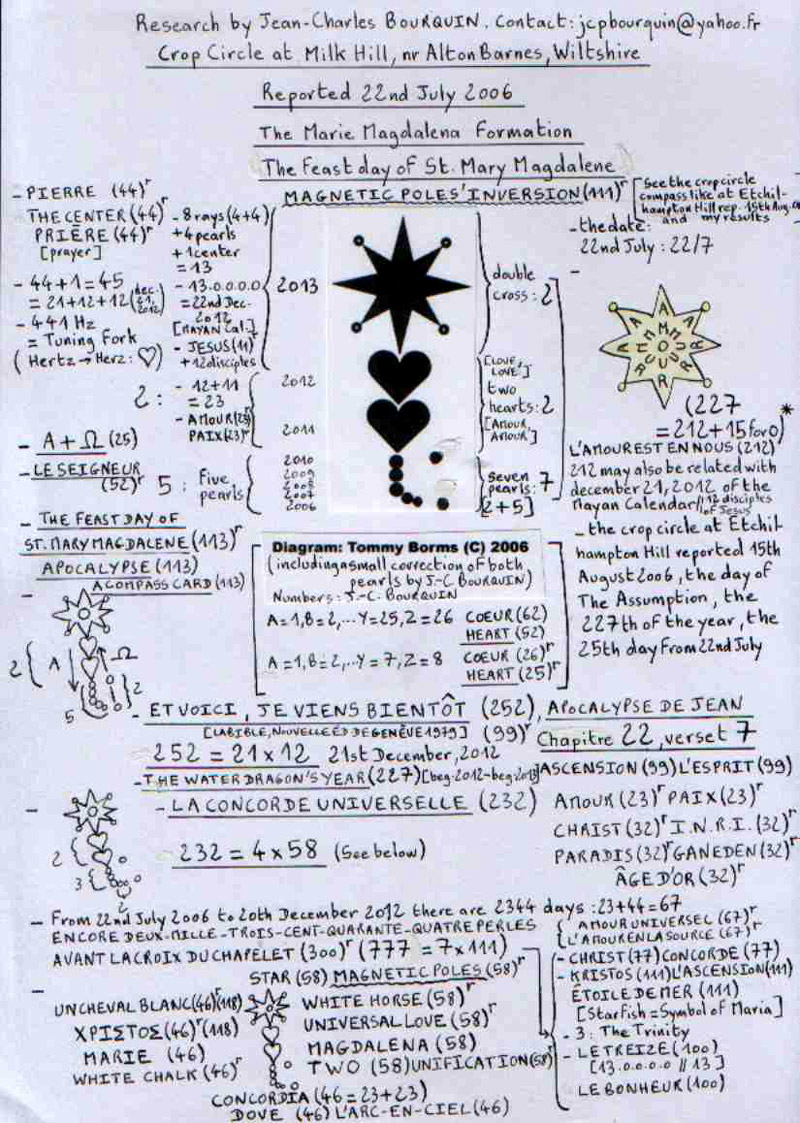 Research by Jean-Charles BOURQUIN. Contact: jcpbourquin@yahoo.fr
Crop Circle at Milk Hill, nr Alton Barnes, Wiltshire
Reported 22nd July 2006
The Marie Magdalena Formation
The Feast day of St. Mary Magdalene
MAGNETIC POLES' INVERSION (111)r
See the crop circle
compass like at Etchil-
hampton Hill rep. 15th Aug.
and my results
- PIERRE (44)r
THE CENTER (44)r
PRIÈRE (44)r
[prayer]
- 44+1=45
= 21+12+12 (dec. 21, 2012)
- 441 Hz
= Tuning Fork
(Hertz → Herz: ♡)
- 8 rays (4+4)
+ 4 pearls
+ 1 center
= 13
- 13.0.0.0.0
= 22nd Dec-
2012
[MAYAN Cal.]
- JESUS (11)r
+ 12 disciples
2013
double
cross: 2
- the date:
22nd July: 22/7
A M O U R
(227
= 212+15 for o) *
L'AMOUR EST EN NOUS (212)
212 may also be related with
december 21, 2012 of the
Mayan Calendar // 12 disciples
of Jesus
2:
- 12+11
= 23
- AMOUR (23)r
PAIX (23)r
2012
2011
[LOVE,
LOVE']
two
hearts: 2
[AMOUR,
AMOUR']
- A + Ω (25)
- LE SEIGNEUR
(52)r
5: Five
pearls
2010
2009
2008
2007
2006
Seven
pearls: 7
[2+5]
- THE FEAST DAY OF
ST. MARY MAGDALENE (113)r
APOCALYPSE (113)
A COMPASS CARD (113)
Diagram: Tommy Borms (C) 2006
(including a small correction of both
pearls by J.-C BOURQUIN)
Numbers: J.-C. BOURQUIN
A=1, B=2, ... Y=25, Z=26 COEUR (62)
HEART (52)
A=1, B=2, ... Y=7, Z=8 COEUR (26)r
HEART (25)r
- the crop circle at Etchil
hampton Hill reported 15th
August 2006, the day of
The Assumption, the
227th of the year, the
25th day from 22nd July
2 A Ω
2
5
- ET VOICI, JE VIENS BIENTÔT (252), APOCALYPSE DE JEAN
[LA BIBLE, NOUVELLE ED DE GENÈVE 1979] (99)r Chapitre 22, verset 7
252 = 21 x 12 21st December, 2012
- THE WATER DRAGON'S YEAR (227) [beg. 2012-beg. 2013]
ASCENSION (99) L'ESPRIT (99)
- LA CONCORDE UNIVERSELLE (232)
AMOUR (23)r PAIX (23)r
CHRIST (32)r I.N.R.I. (32)r
232 = 4 x 58 (See below)
PARADIS (32)r GAN EDEN (32)r
ÂGE D'OR (32)r
2
3
2
- From 22nd July 2006 to 20th December 2012 there are 2344 days: 23+44=67
ENCORE DEUX-MILLE-TROIS-CENT-QUARANTE-QUATRE PERLES
AVANT LA CROIX DU CHAPELET (300)r (777 = 7x111)
AMOUR UNIVERSEL (67)r
L'AMOUR EN LA SOURCE (67)r
- CHRIST (77) CONCORDE (77)
- KRISTOS (111) L'ASCENSION (111)
ÉTOILE DE MER (111)
[Starfish = Symbol of Maria]
- 3: The Trinity
- LE TREIZE (100)
[13.0.0.0.0 // 13]
LE BONHEUR (100)
STAR (58) MAGNETIC POLES (58)r
UN CHEVAL BLANC (46)r (118)
WHITE HORSE (58)r
ΧΡΙΣΤΟΣ (46)r (118)
UNIVERSAL LOVE (58)r
MARIE (46)
MAGDALENA (58)
WHITE CHALK (46)r
TWO (58) UNIFICATION (58)r
CONCORDIA (46 = 23+23)
DOVE (46) L'ARC-EN-CIEL (46)